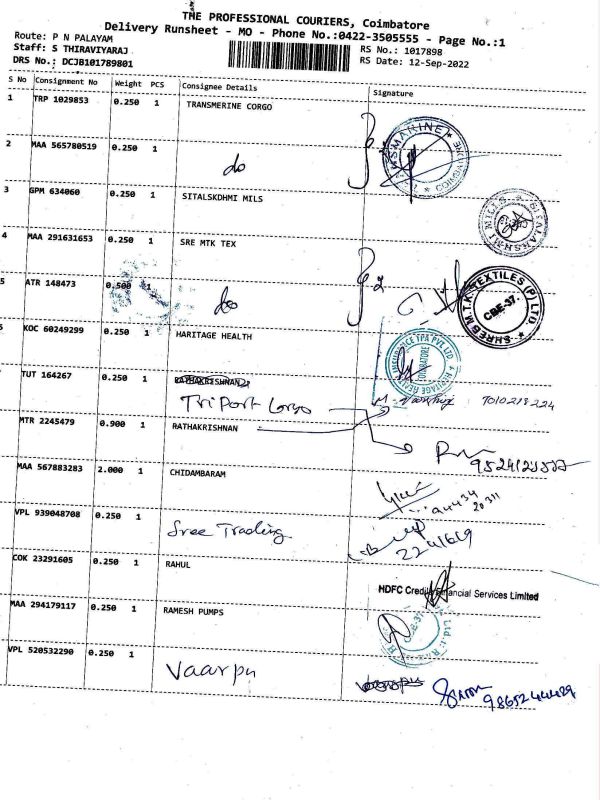 THE PROFESSIONAL COURIERS, Coimbatore
Delivery Runsheet - MO - Phone No.:0422-3505555 - Page No.:1
Route: P N PALAYAM
Staff: S THIRAVIYARAJ
DRS No.: DCJB101789801
RS No.: 1017898
RS Date: 12-Sep-2022
S No Consignment No Weight PCS Consignee Details Signature
1 TRP 1029853 0.250 1 TRANSMERINE CORGO
2 MAA 565780519 0.250 1 do
3 GPM 634060 0.250 1 SITALSKDHMI MILS
4 MAA 291631653 0.250 1 SRE MTK TEX
5 ATR 148473 0.500 1 do
SHREE M.T.K. TEXTILES (P) LTD.
CBE-37.
6 KOC 60249299 0.250 1 HARITAGE HEALTH
COIMBATORE
TUT 164267 0.250 1 RATHAKRISHNAN
Triport Corgo
7010218224
MTR 2245479 0.900 1 RATHAKRISHNAN
MAA 567883283 2.000 1 CHIDAMBARAM
VPL 939048708 0.250 1 Sree Trading
COK 23291605 0.250 1 RAHUL
HDFC Credila Financial Services Limited
MAA 294179117 0.250 1 RAMESH PUMPS
CBE-37.
VPL 520532290 0.250 1 Vaarpu